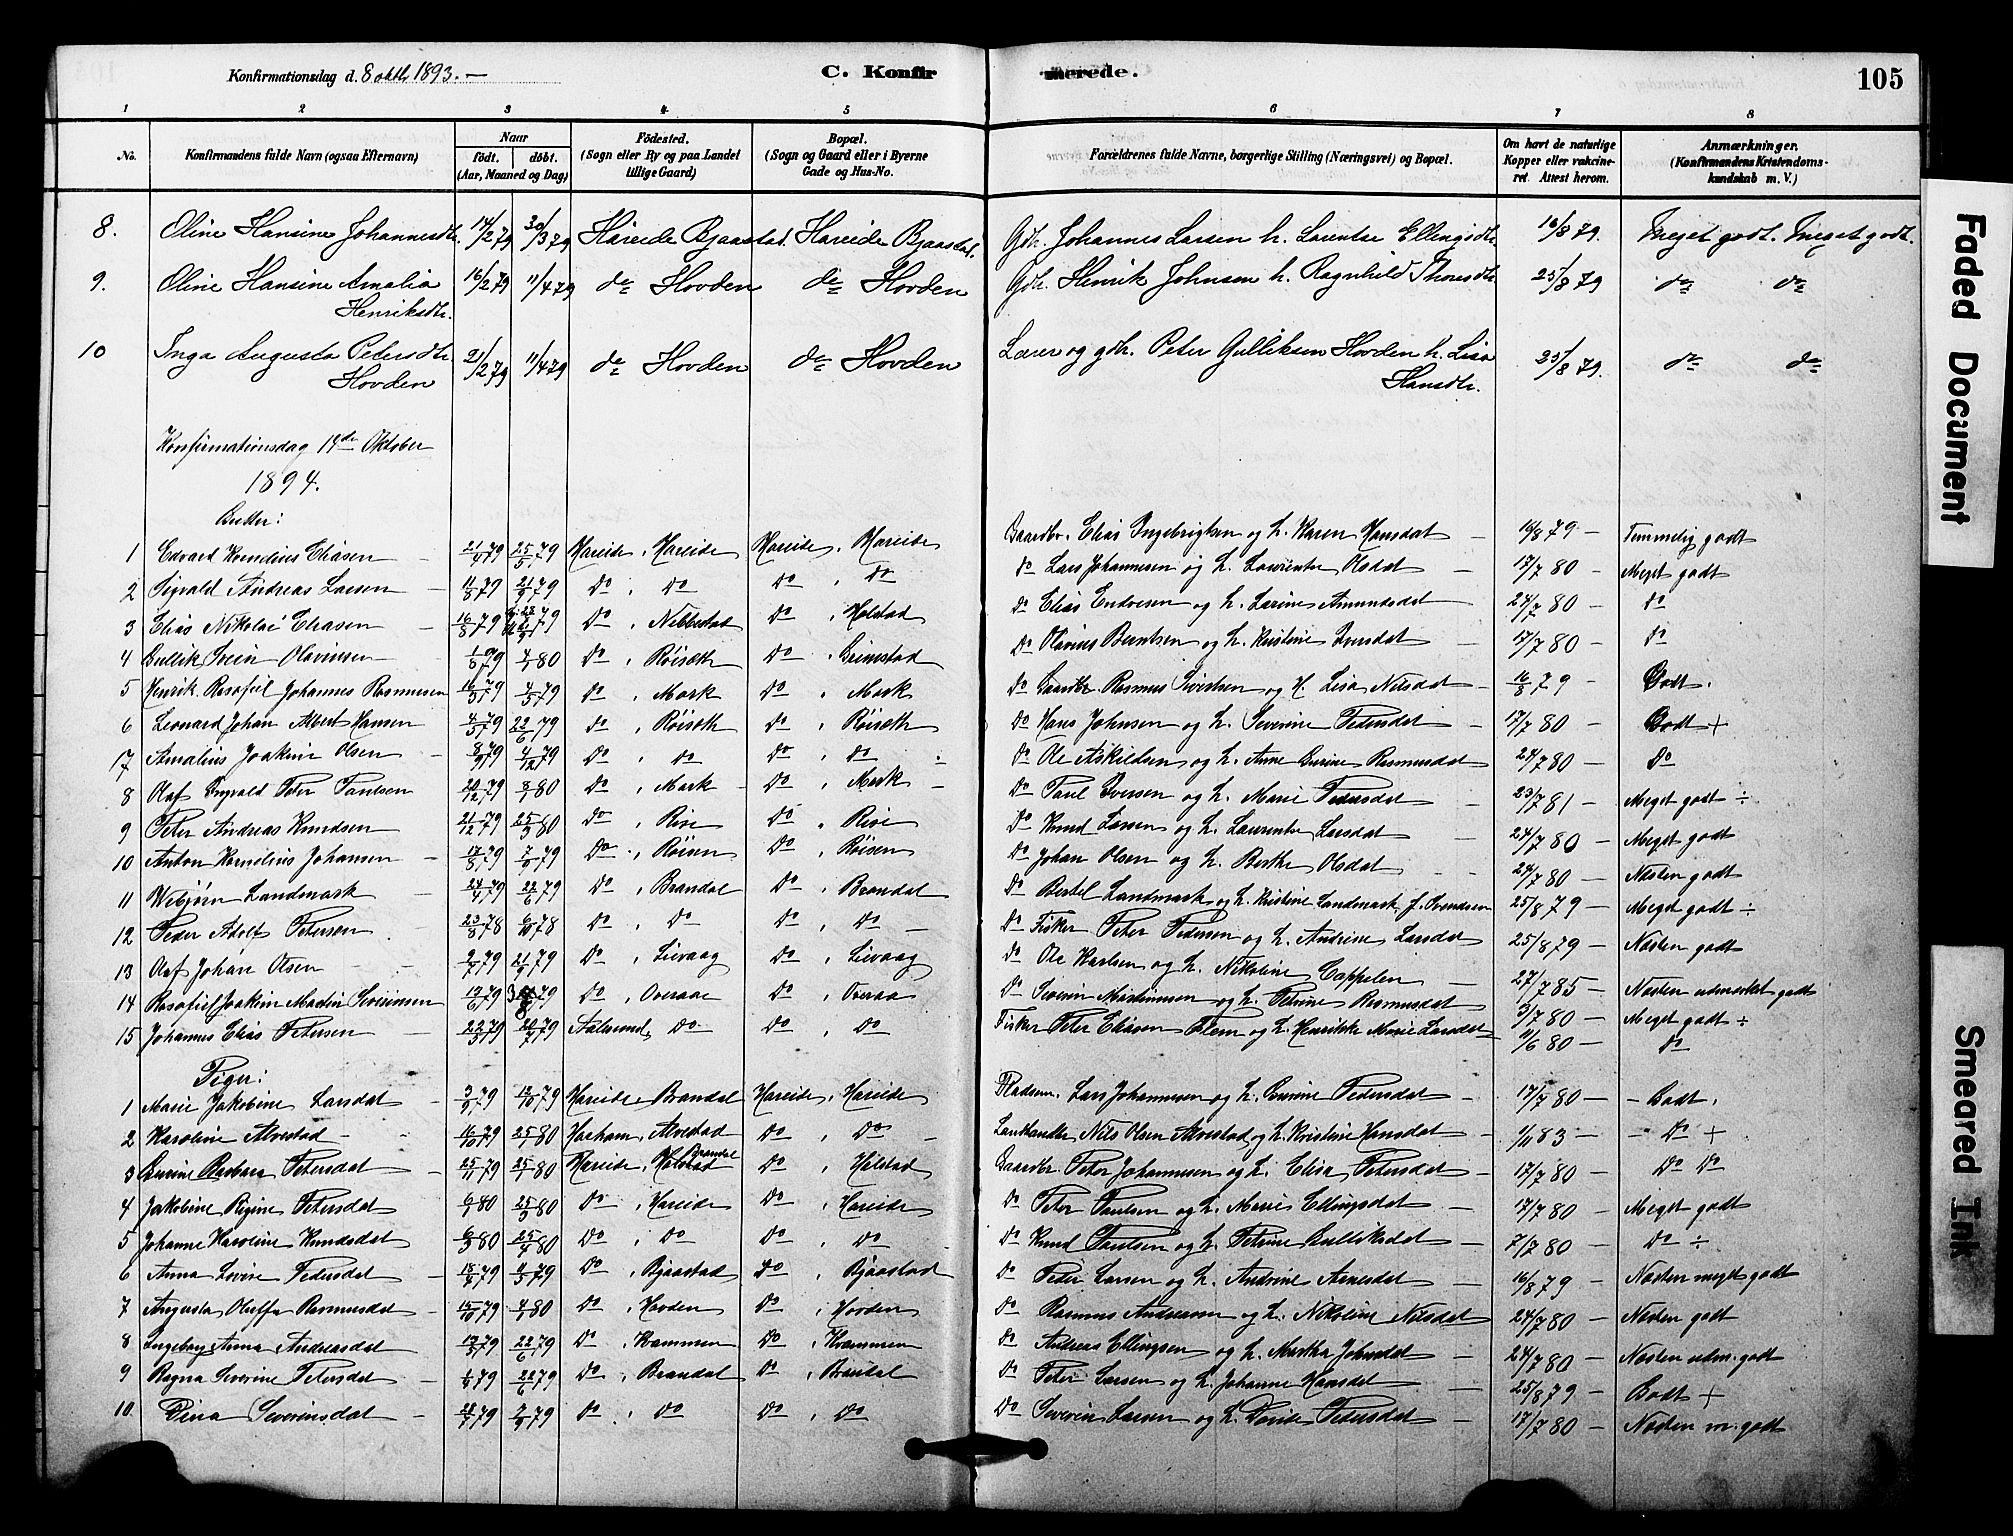 Konfirmationsdag d. 8 oktb 1893. —
C. Konfirmerede.
105
1 2 3 4 5 6 7 8
No. Konfirmandens fulde Navn (ogsaa Efternavn) Naar født. døbt. (Aar, Maaned og Dag) Födested. (Sogn eller By og paa Landet tillige Gaard) Bopæl. (Sogn og Gaard eller i Byerne Gade og Hus-No. Forældrenes fulde Navne, borgerlige Stilling (Næringsvei) og Bopæl. Om havt de naturlige Kopper eller vakcineret. Attest herom. Anmærkninger. (Konfirmandens Kristendomskundskab m. V.)
8. Oline Hansine Johannesdtr. 14/2 79 30/3 79 Hareide Bjaastad. Hareide Bjaastad. Gdr. Johannes Larsen h. Larentse Ellingsdtr 16/8 79. Meget godt. Meget godt.
9. Oline Hansine Amalia Henriksdtr. 16/2 79 11/4 79 do Hovden do Hovden Gdr. Henrik Johnsen h. Ragnhild Thoresdtr. 25/8 79 do do
10 Inga Augusta Petersdtr. Hovden 21/2 79 11/4 79 do Hovden do Hovden Lærer og gdr. Peter Gulliksen Hovden h. Lisa Hansdtr. 25/8 79. do do
Konfirmationsdag 14de Oktober
1894.
Gutter:
1 Edvard Kornelius Eliasen 21/4 79 25/5 79 Hareide, Hareide Hareide, Hareide Gaardbr. Elias Ingebrigtsen og h. Karen Hansdat — 16/8 79 — Temmelig godt
2 Sigvald Andreas Larsen — 11/8 79 21/9 79 Do , Do Do , Do Do Lars Johannesen og h. Lawrentse Olsdat — 17/7 80 — Meget godt
3 Elias Nikolai Eliasen — 16/8 79 Do , Nibbestad Do , Holstad Do Elias Endresen og h. Larine Amundsdat 24/7 80 — Do
4 Gullik Svein Olavinsen — 1/9 79 4/1 80 Do , Röiseth Do , Grimstad Do Olavius Berntsen og h. Kristine Iversdat 17/7 80 — Do
5 Henrik Rasofiel Johannes Rasmusen 16/3 79 4/5 79 Do , Mork Do , Mork Do Gaardbr. Rasmus Sivertsen og h. Lisa Nilsdat — 16/8 79 — Godt.
6 Leonard Johan Albert Hansen 4/5 79 22/6 79 Do , Röiseth Do , Röiseth Do Hans Johnsen og h. Severine Petersdat — 17/7 80 — Godt +
7 Amalius Joakim Olsen — 8/9 79 4/12 79 Do , Do Do , Do Do Ole Askildsen og h. Anne Gurine Rasmusdat 24/7 80 — Do
8 Olaf Ingvald Peter Paulsen 20/12 79 8/1 80 Do , Mork — Do , Mork — Do Paul Iversen og h. Marie Pedersdat — 23/7 81 — Meget godt ÷
9 Peter Andreas Knudsen 21/12 79 25/3 80 Do , Rise Do , Rise Do Knud Larsen og h. Laurentse Larsdat — 24/7 80 — Meget godt
10 Anton Kornelius Johansen — 17/8 79 7/9 79 Do , Röisen Do , Röisen Do Johan Olsen og h. Berthe Olsdat — 24/7 80 — Næsten godt
11 Webjørn Landmark — 24/4 79 22/6 79 Do , Brandal Do , Brandal Do Bertel Landmark og h. Kristine Landmark f. Svendsen 25/8 79 — Meget godt ÷
12 Peder Adolf Petersen 23/8 78 6/10 78 Do , Do Do , Do — Do Fisker Peter Pedersen og h. Andrine Larsdat 25/8 79 — Næsten godt
13 Olaf Johan Olsen — 2/7 79 21/9 79 Do , Lievaag Do , Lievaag Do Ole Karlsen og h. Nikoline Cappelen — 27/7 85 — Næsten udmærket godt
14 Rasofiel Joakim Martin Severinsen 19/6 79 Do , Overaae Do , Overaa Do Severin Mastinussen og h. Petrine Rasmusdat 3/7 80 — Meget godt ÷
15 Johannes Elias Petersen 22/5 79 20/7 79 Aalesund, Do Do , Do Fisker Peter Eliasen Flem og h. Henrikke Marie Larsdat 11/6 80 — Do
Piger:
1 Marie Jakobine Larsdat — 3/9 79 12/10 79 Hareide, Brandal Hareide, Hareide Pladsem. Lars Johannesen og h. Gurine Pedersdat — 17/7 80 — — Godt.
2 Karoline Alvestad — 16/10 79 25/1 80 Joeham, Alvestad Do , Do — Landhandler Nils Olsen Alvestad og h. Kristine Hansdat — 1/11 83 — — Do +
3 Gurine Barbara Petersdat 25/11 79 25/1 80 Hareide, Holstad Brandal Do , Holstad Gaardbr. Peter Johannesen og h. Elisa Petersdat — 17/7 80 — Do Do
4 Jakobine Rigine Petersdat 6/1 80 25/3 80 Do , Hareide Do , Hareide Do Peter Paulsen og h. Marie Ellingsdat — 17/7 80 — Meget godt
5 Johanne Karoline Knudsdat 6/3 80 25/4 80 Do , Do Do , Do Do Knud Paulsen og h. Petrine Gulliksdat — 7/7 80 — Do ÷
6 Anna Lovise Pedersdat — 18/4 79 4/5 79 Do , Bjaastad Do , Bjaastad Do Peder Larsen og h. Andrine Arnesdat — 16/8 79 — Næsten meget godt
7 Augusta Oluffa Rasmusdat 15/10 79 4/1 80 Do , Hovden Do , Hovden Do Rasmus Andreasen og h. Nikoline Nilsdat — 24/7 80 — Næsten godt
8 Ingeborg Anna Andreasdat 13/5 79 22/6 79 Do , Hammen Do , Hammen Do Andreas Ellingsen og h. Martha Johnsdat — 24/7 80 — Næsten udm. godt
9 Ragna Severine Petersdat — 1/4 79 22/6 79 Do , Brandal Do , Brandal Do Peter Larsen og h. Johanne Hansdat — 25/8 79 — Godt +
10. Dina Severinsdat — 28/7 79 7/9 79 Do , Do Do , Do Do Severin Larsen og h. Dorthe Pedersdat — 17/7 80 — Næsten m. godt
Faded Document
Smeared Ink